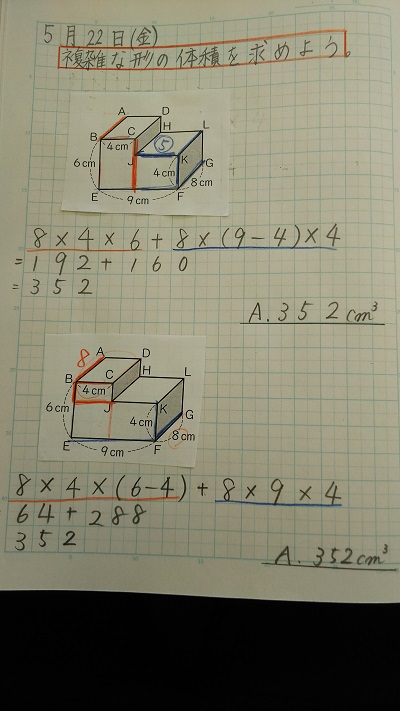 5月22日(金)
複雑な形の体積を求めよう。
A
D
B
C
H
L
4cm
⑤
6cm
J
K
G
4cm
8cm
E
F
9cm
8×4×6+8×(9-4)×4
=192+160
=352
A.352cm³
8
A
D
B
C
H
L
4cm
6cm
J
K
G
4cm
8cm
E
F
9cm
8×4×(6-4)+8×9×4
64+288
352
A.352cm³